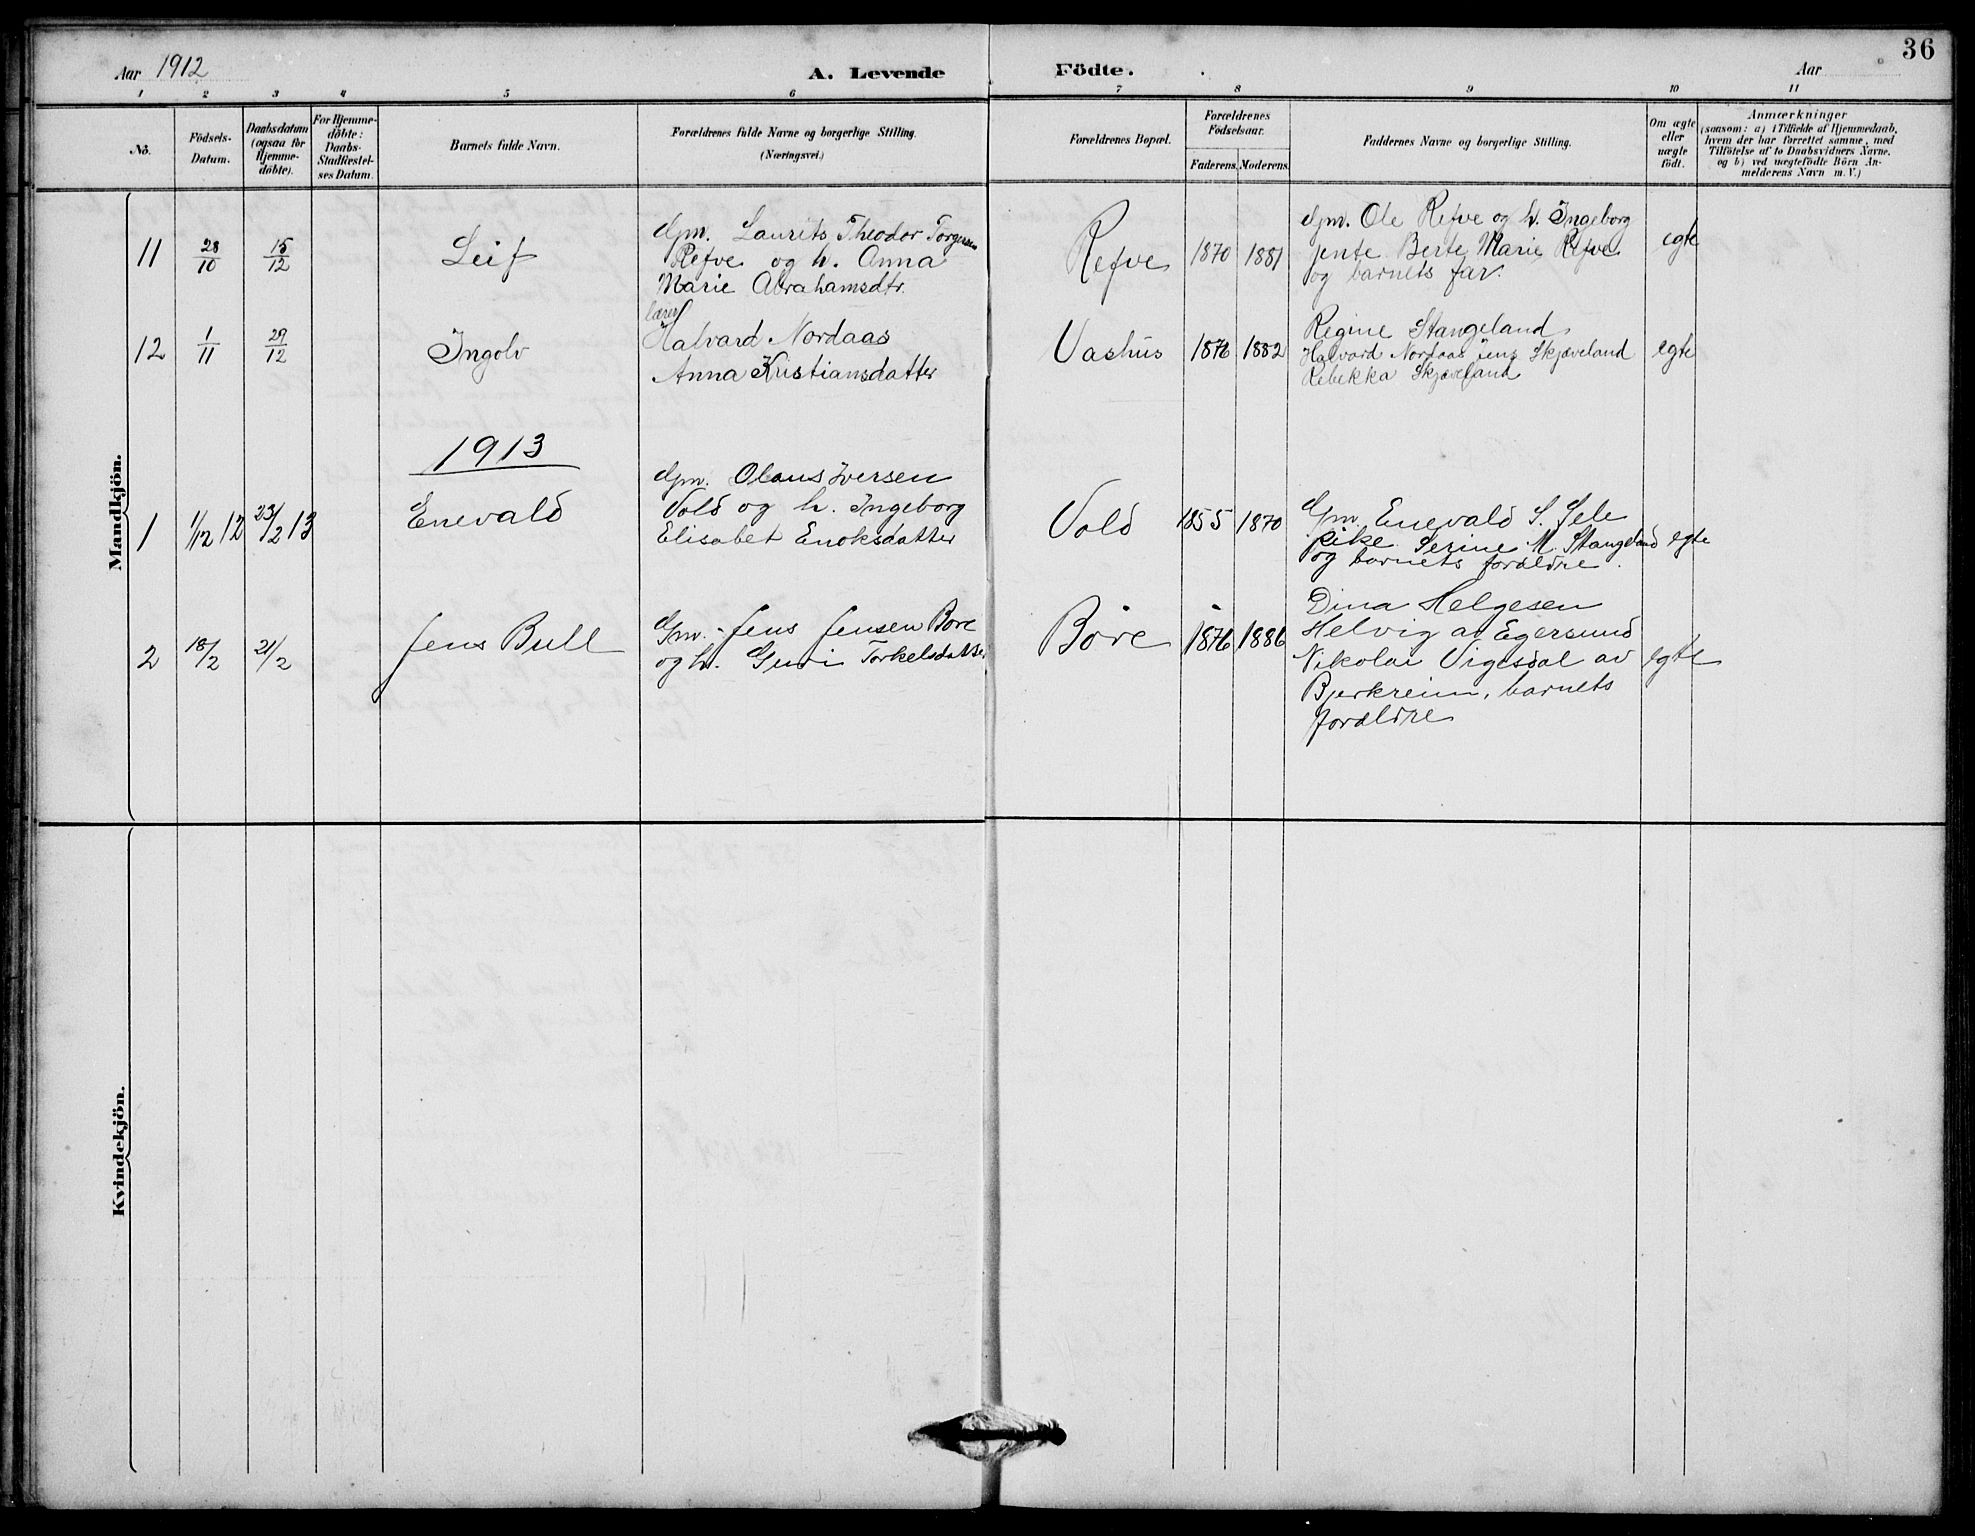 36
Aar 1912 A. Levende Födte. Aar
1 2 3 4 5 6 7 8 9 10 11
No.
Födsels-
Datum.
Daabsdatum
(ogsaa for
Hjemme-
döbte).
For Hjemme-
döbte:
Daabs-
Stadfæstel-
ses Datum.
Barnets fulde Navn.
Forældrenes fulde Navne og borgerlige Stilling.
(Næringsvei.)
Forældrenes Bopæl.
Forældrenes
Födselsaar.
Faderens. Moderens.
Faddernes Navne og borgerlige Stilling.
Om ægte
eller
uægte
födt.
Anmærkninger
(saasom: a) i Tilfælde af Hjemmedaab,
hvem der har forrettet samme, med
Tilföielse af to Daabsvidners Navne,
og b) ved uægtefödte Börn An-
melderens Navn m. V.)
Mandkjön.
11 28/10 15/12 Leif
gm. Laurits Theodor Torgersen
Refve og h. Anna
Marie Abrahamsdtr.
Refve 1870 1881
gm. Ole Refve og h. Ingeborg
jente Berte Marie Refve
og barnets far.
egte
12 1/11 29/12 Ingolv
lærer
Halvard Nordaas
Anna Kristiansdatter
Vashus 1876 1882
Regine Stangeland,
Halvard Nordaas Jens Skjæveland
Rebekka Skjæveland
egte
1913
1 1/12 12 23/2 13 Enevald
gm. Olaus Iversen
Vold og h. Ingeborg
Elisabet Enoksdatter
Vold 1855 1870
Gm. Enevald S. Sele
pike Serine M. Stangeland
og barnets foraldre.
egte
2 18/2 21/2 Jens Bull
Gm. Jens Jensen Bore
og h. Guri Torkelsdatter
Bore 1876 1886
Dina Helgesen
Helvig av Egersund
Nikolai Vigesdal av
Bjerkreim, barnets
foraldre
egte
Kvindekjön.